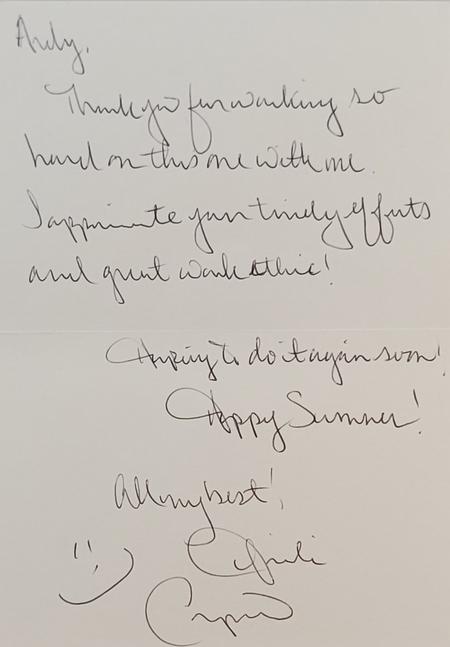 Andy,
Thank you for working so
hard on this one with me.
I appreciate your timely efforts
and great work ethic!
Hoping to do it again soon!
Happy Summer!
All my best!